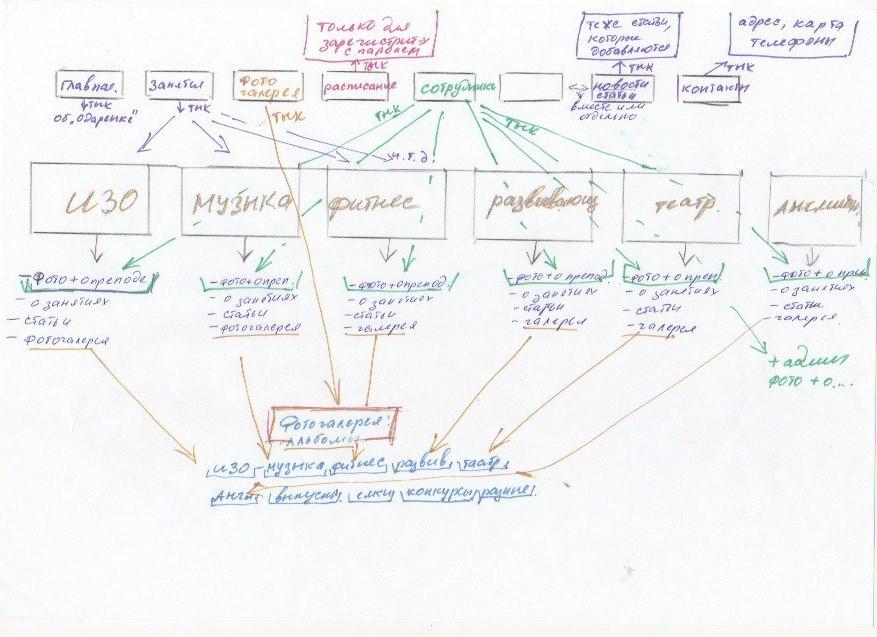 только для
зарегистрир.
с паролем
те же статьи,
которые
добавляются
адрес, карта
телефоны
тык
тык
тык
главная.
Занятия
Фото
галерея
расписание
сотрудники
новости
статьи
контакты
тык
об "одаренке"
тык
тык
тык
тык
вместе или
отдельно
и.т.д.
ИЗО
музыка
фитнес
развивающ
театр.
английский.
- Фото + о преподе
- о занятиях
- статьи
- фотогалерея
- фото + о преп.
- о занятиях
- статьи
- фотогалерея
- фото + о препод.
- о занятиях
- статьи
- галерея
- фото + о препод.
- о занятиях
- статьи
- галерея
- фото + о преп.
- о занятиях
- статьи
- галерея
- фото + о преп.
- о занятиях
- статьи
- галерея.
+ админ
фото + о...
Фотогалерея:
альбомы
ИЗО музыка, фитнес развив. театр.
Англ. выпуски ёлки конкурсы разные.